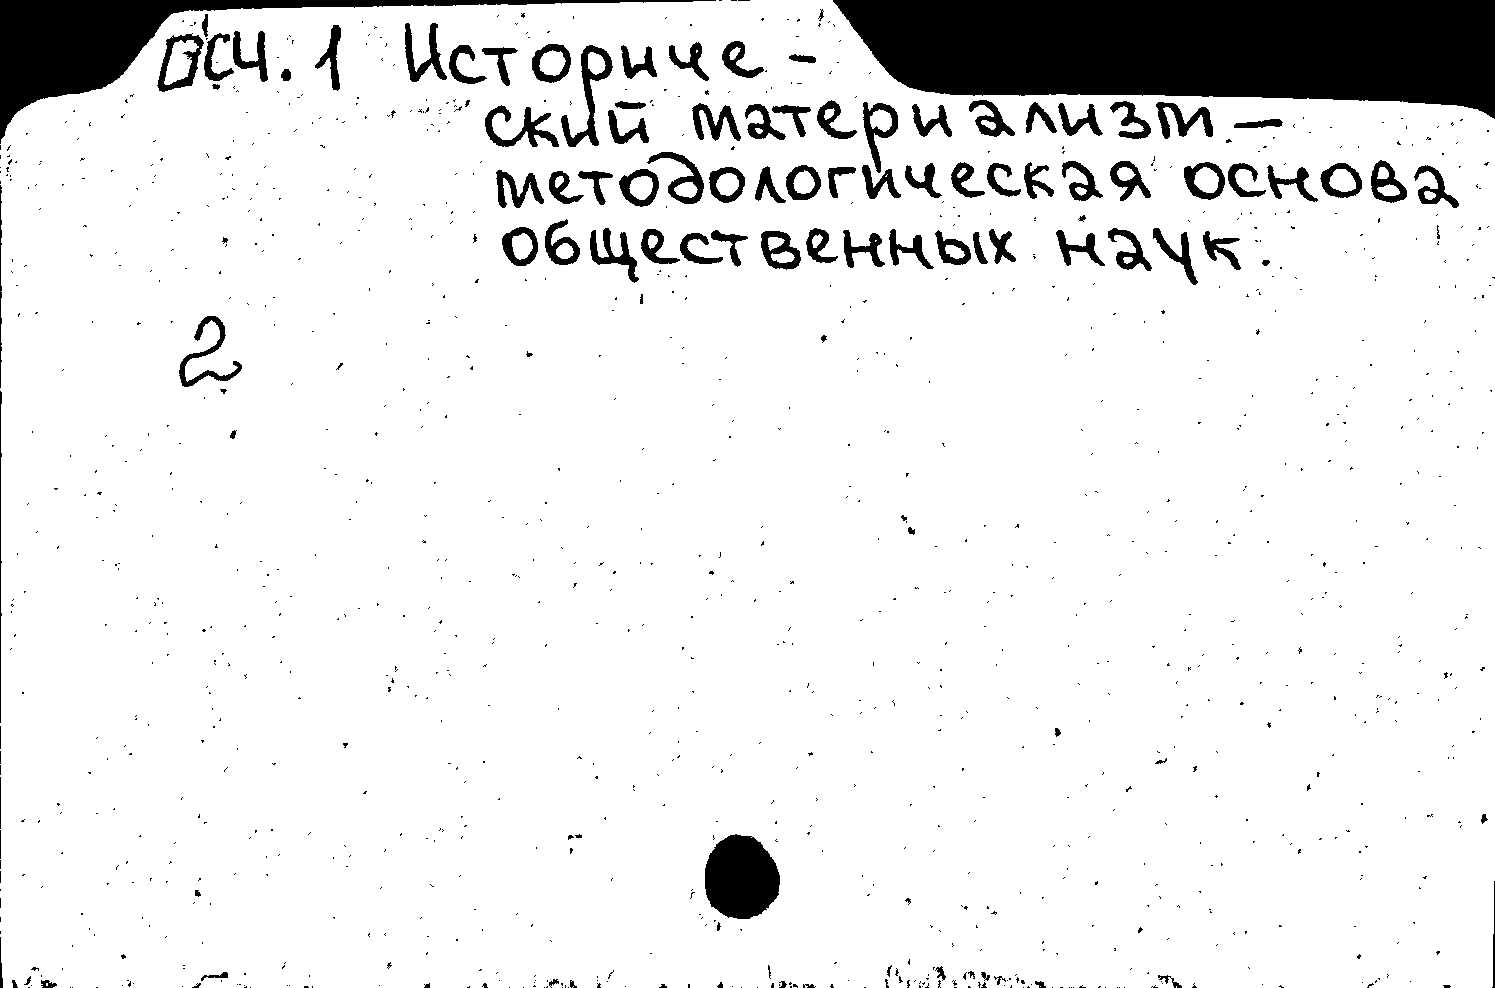 Ч.1 Историче-
ский материализм —
методологическая основа
общественных наук.
2